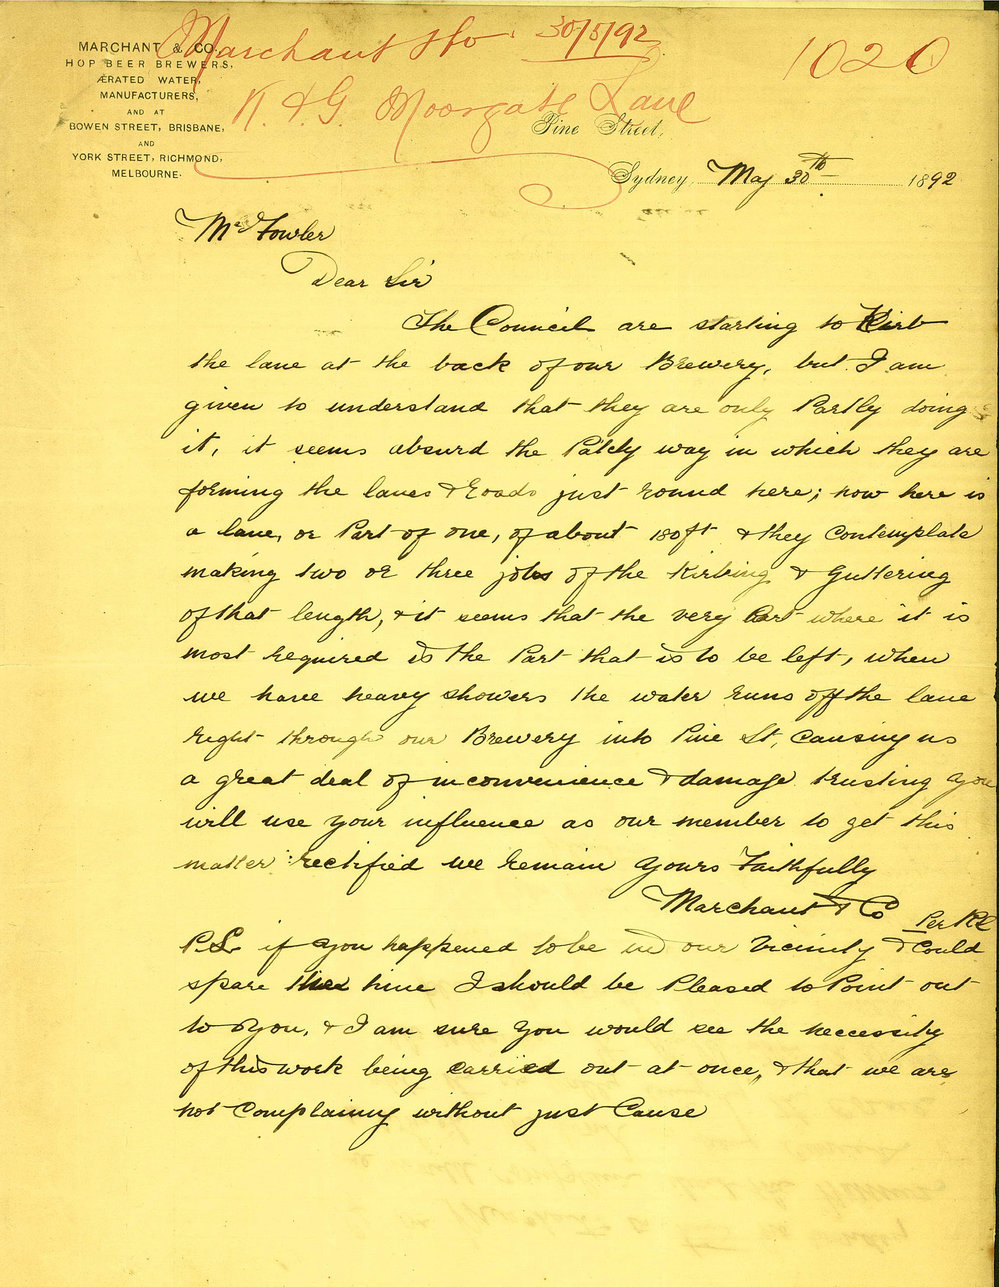 MARCHANT & CO.
HOP BEER BREWERS,
ÆRATED WATER,
MANUFACTURERS,
AND AT
BOWEN STREET, BRISBANE,
AND
YORK STREET, RICHMOND,
MELBOURNE.
Marchant & Co. 30/5/92
1020
K. & G. Moorgate Lane
Pine Street,
Sydney, May 30th 1892
Mr Fowler
Dear Sir
The Council are starting to Kirb
the lane at the back of our Brewery, but I am
given to understand that they are only Partly doing
it, it seems absurd the Patchy way in which they are
forming the lanes & roads just round here; now here is
a lane, or Part of one, of about 180 ft & they contemplate
making two or three jobs of the Kirbing & Guttering
of that length, & it seems that the very Part where it is
most required is the Part that is to be left, when
we have heavy showers the water runs off the lane
right through our Brewery into Pine St, causing us
a great deal of inconvenience & damage trusting you
will use your influence as our member to get this
matter rectified we remain Yours Faithfully
Marchant & Co
Per
P.S. if you happened to be in our Vicinity & could
spare time I should be Pleased to Point out
to you, & I am sure you would see the necessity
of this work being carried out at once, & that we are
not complaining without just Cause